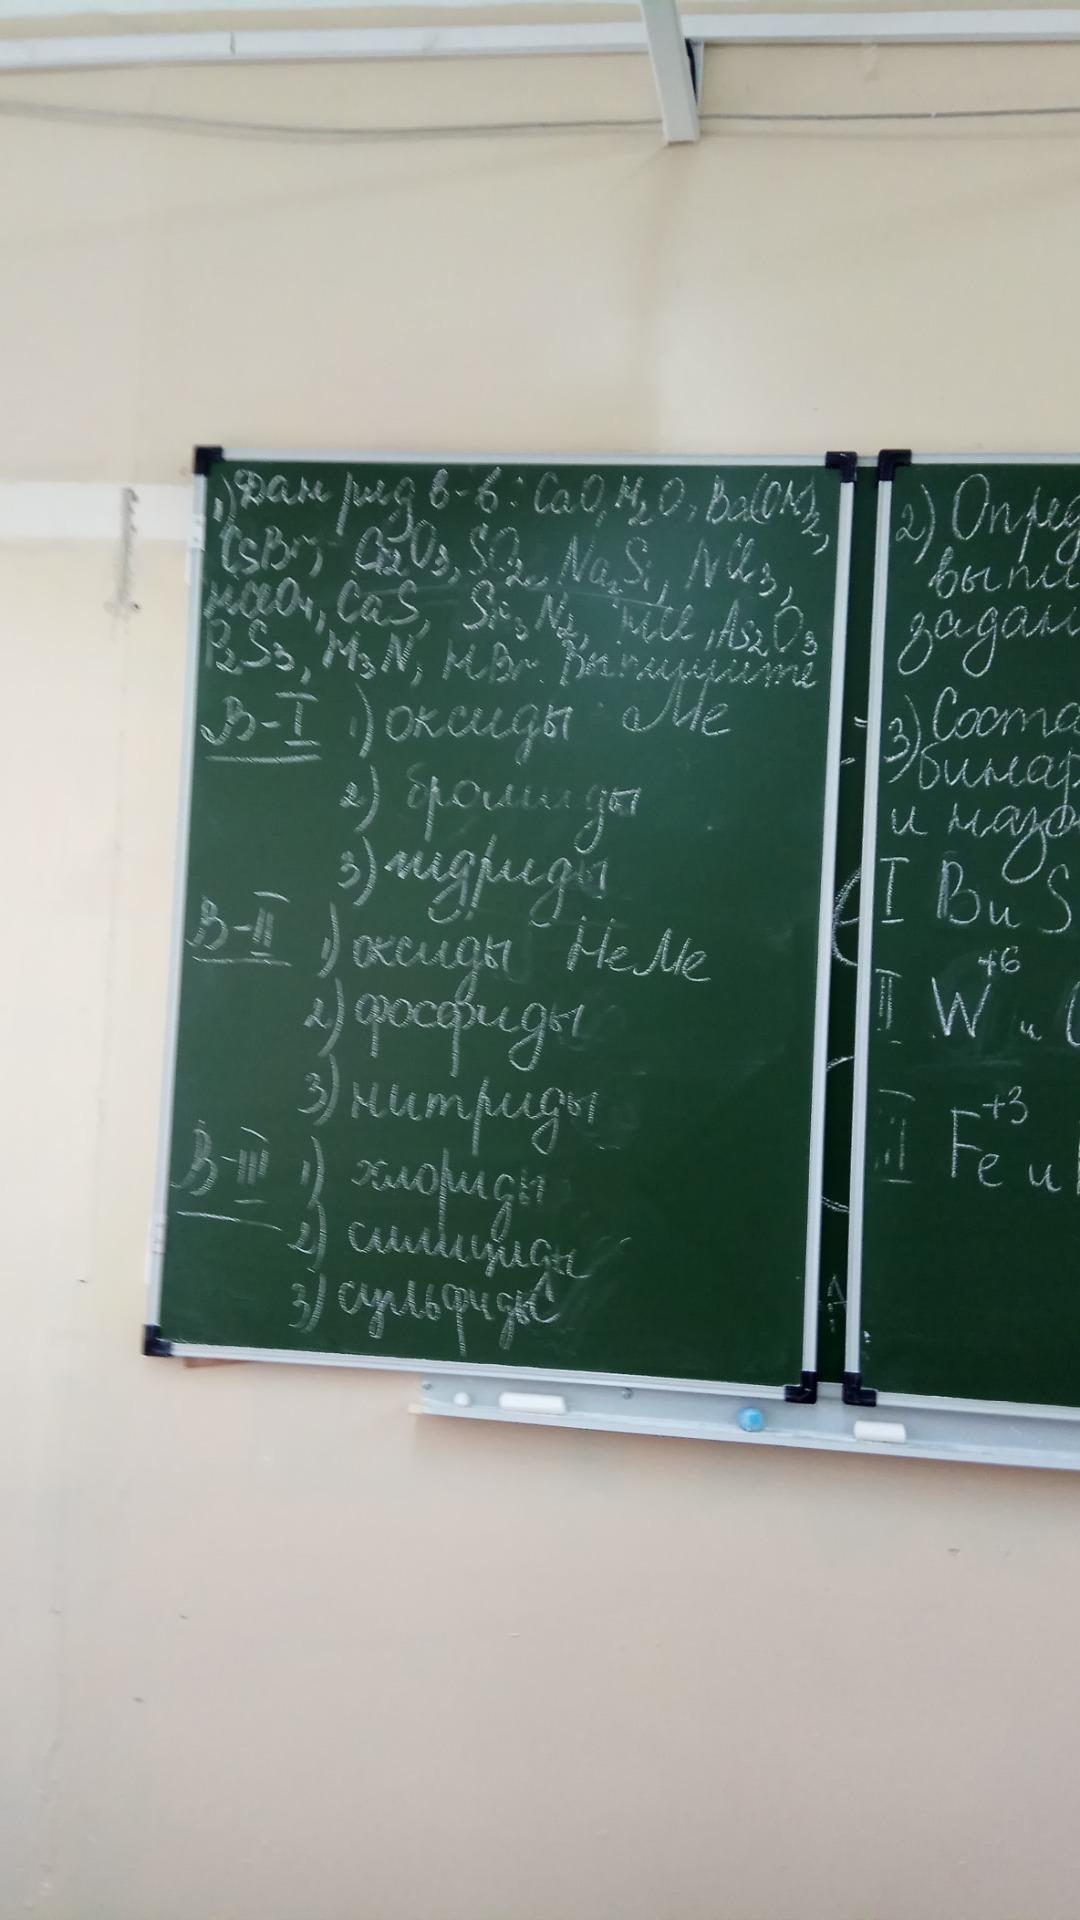 1) Дан ряд в-в: CaO, H₂O, Ba(OH)₂,
CsBr, Cr₂O₃, SO₂, Na₂Si, NCl₃,
HClO₄, CaS, Sr₃N₂, HCl, As₂O₃
P₂S₃, H₃N, HBr. Выпишите
В-I 1) оксиды Ме
2) бромиды
3) гидриды
В-II 1) оксиды НеМе
2) фосфиды
3) нитриды
В-III 1) хлориды
2) силициды
3) сульфиды
2) Опред
выпи
задан
3) Соста
бинар
и назо
I B и S
II W⁺⁶ и
III Fe⁺³ и